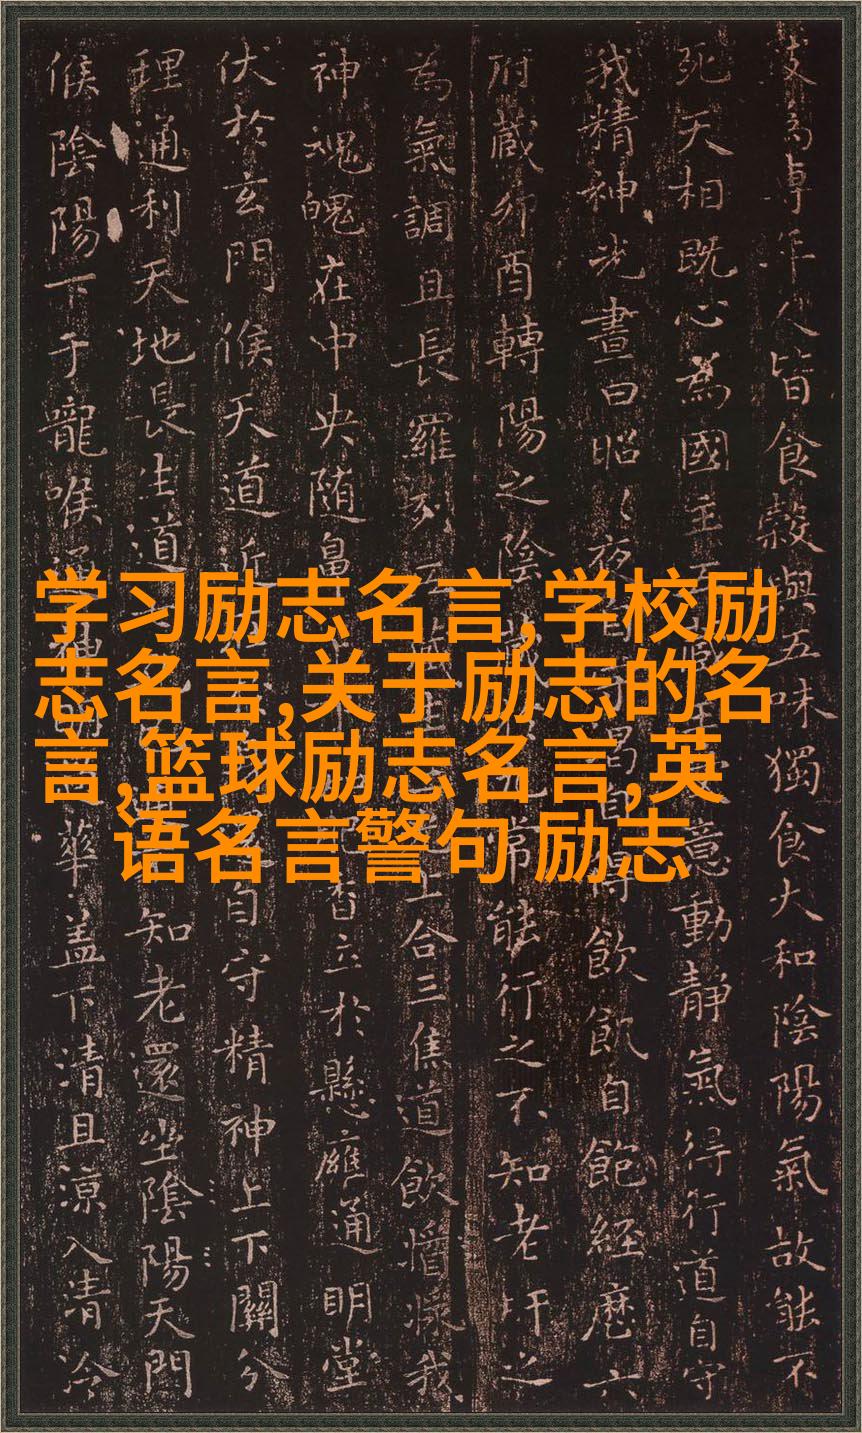 学习励志名言,学校励
志名言,关于励志的名
言,篮球励志名言,英
语名言警句 励志
人皆食穀與五味獨食大和陰陽氣故能不
死天相既心為國主五藏王意動靜氣得行道自守
我精神光晝日昭〻夜自得飲飢自飽經歷六
府藏卯酉轉陽之陰藏常能行之不知老肝之
為氣調且長羅列五藏上合三焦道飲醬漿我
神魂魄在中央随鼻香立於懸癰通明堂
伏於玄門候天道近自守精神上下關分
理通利天地長生道知老還坐陰陽天門
候陰陽下于嚨喉通神明華盖下清且涼入清泠